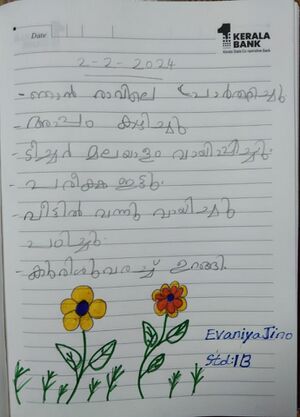 Date
1 KERALA BANK
Kerala State Co-operative Bank
2-2-2024
- ഞാൻ രാവിലെ പ്രാർത്ഥിച്ചു
- അപ്പം കഴിച്ചു
- ടീച്ചർ മലയാളം വായിപ്പിച്ചു.
- പരീക്ഷ ഇട്ടു.
- വീട്ടിൽ വന്നു വായിച്ചു
പഠിച്ചു.
- കുരിശുവരച്ച് ഉറങ്ങി.
Evaniya Jino
Std:1B